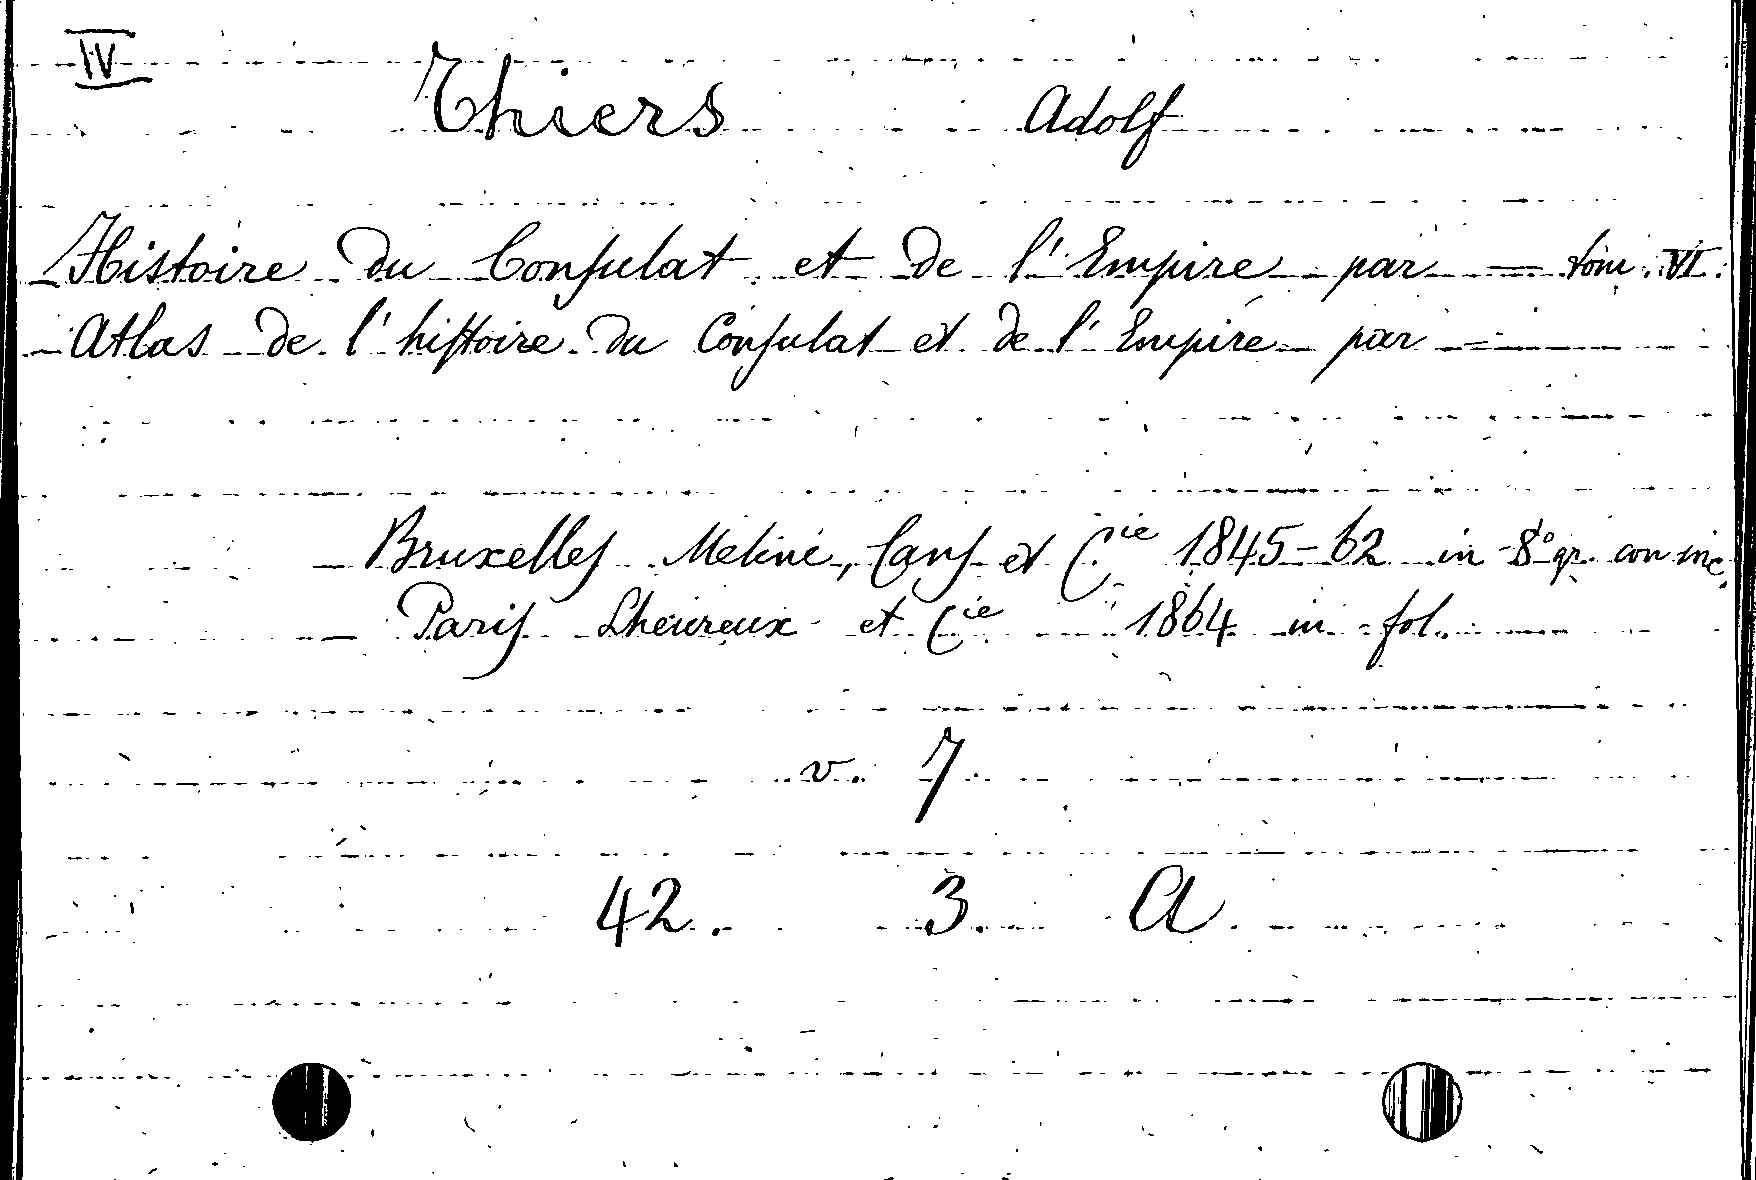 IV
Thiers Adolf
Histoire du Consulat et de l'Empire par — tom. VI.
Atlas de l'histoire du Consulat et de l'Empire par —
Bruxelles Meline, Cans et Cie 1845-62 in 8º gr. con inc.
Paris Lheureux et Cie 1864 in fol.
v. 7
42. 3. A